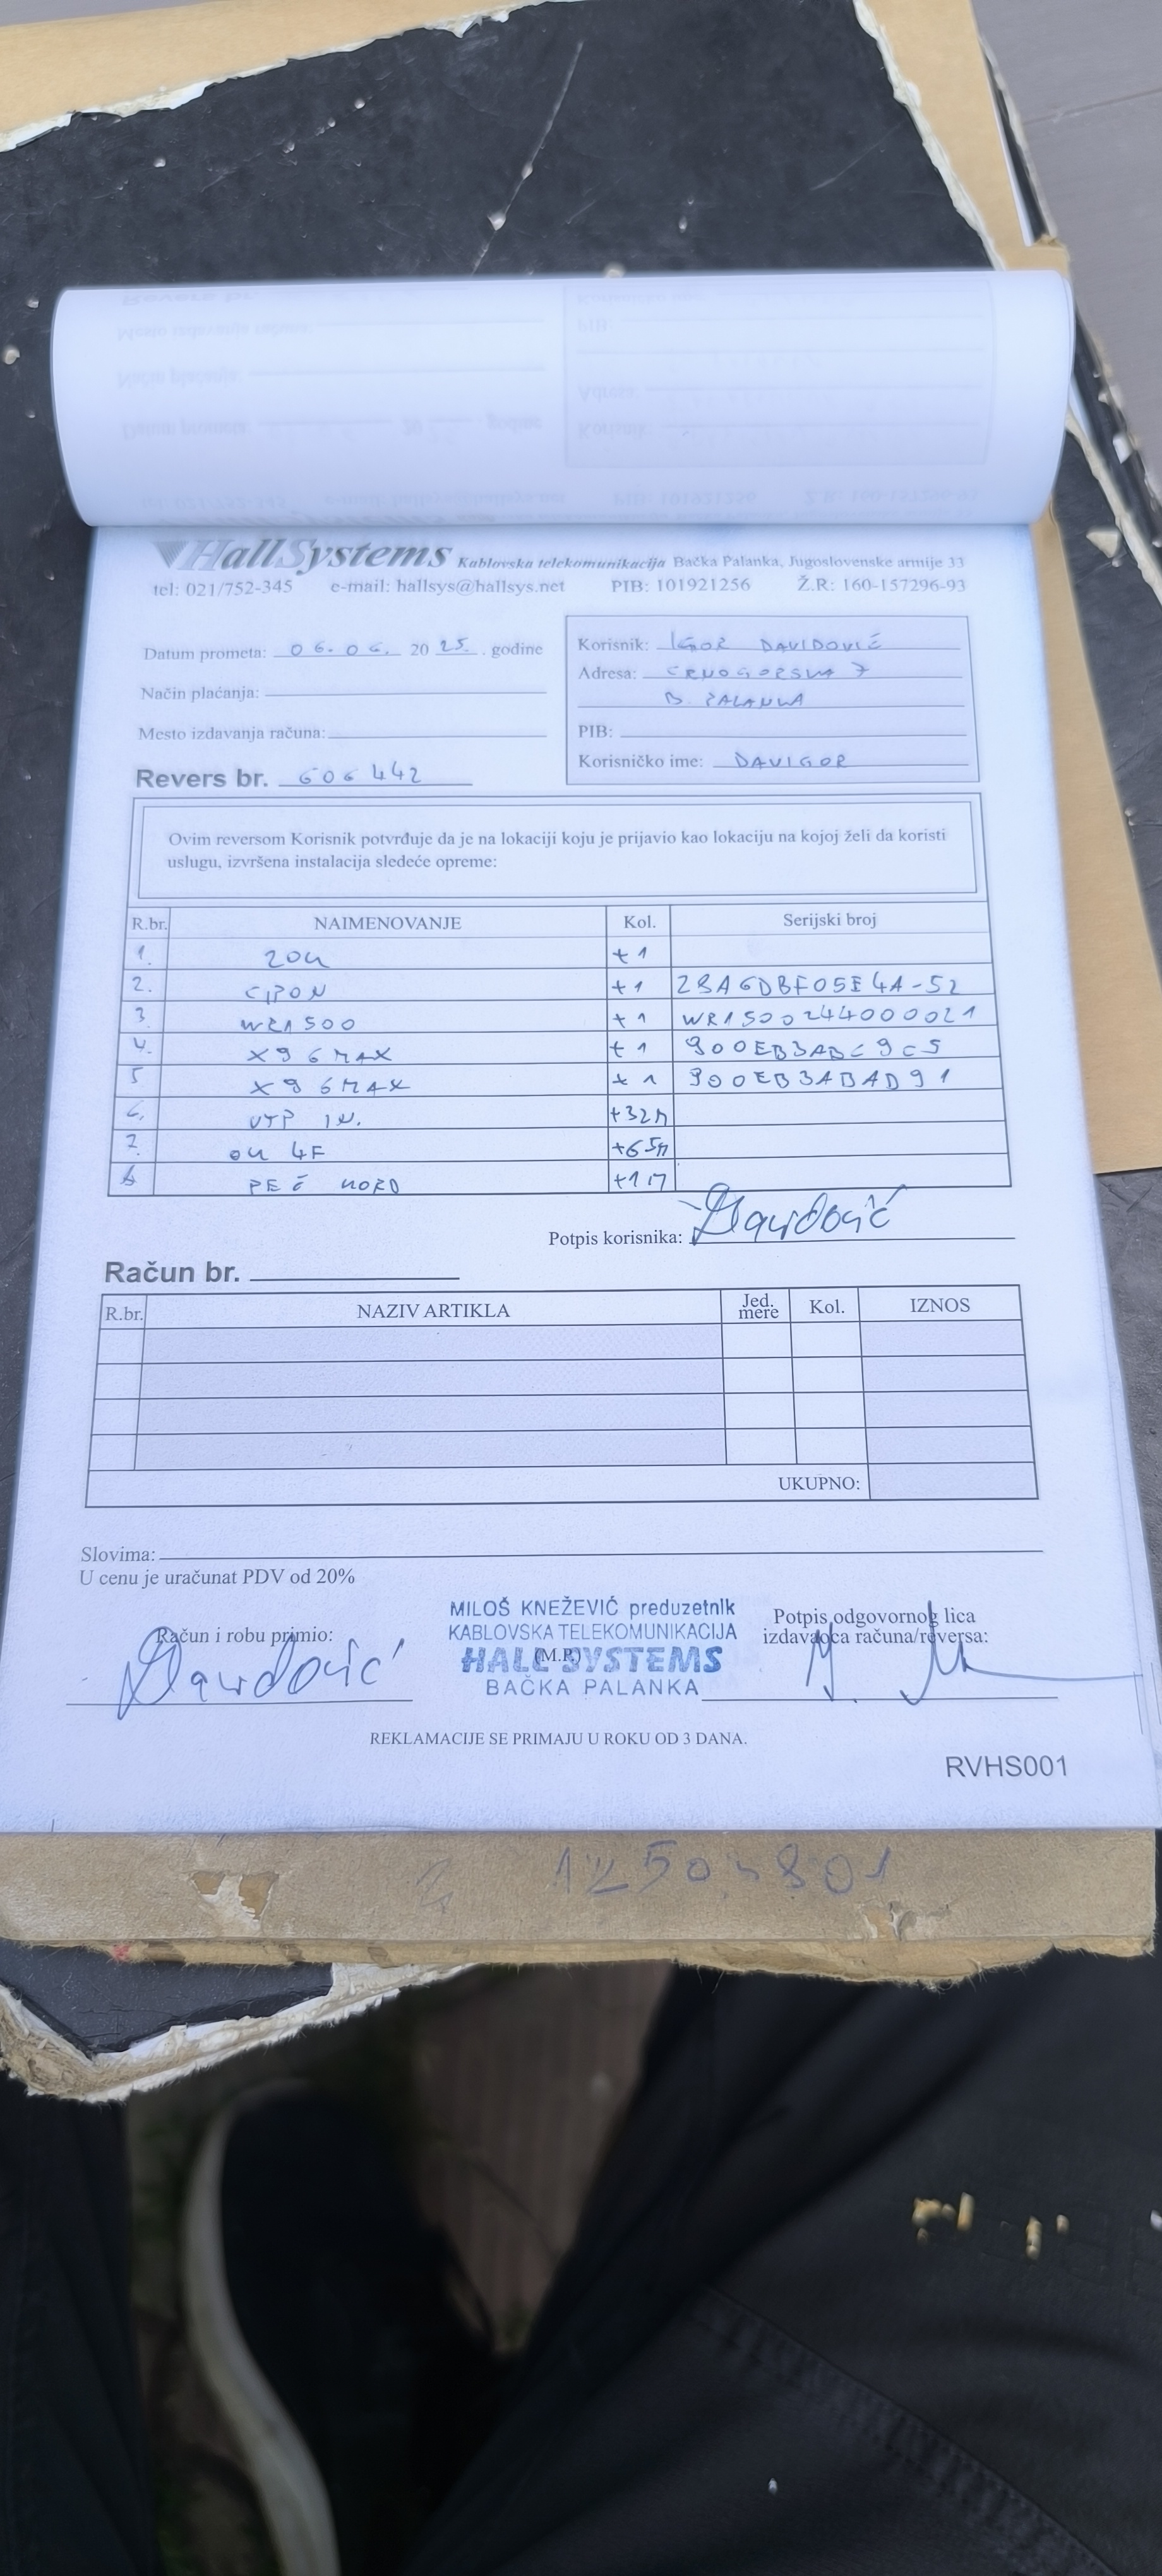 HallSystems Kablovska telekomunikacija Bačka Palanka, Jugoslovenske armije 33
tel: 021/752-345 e-mail: hallsys@hallsys.net PIB: 101921256 Ž.R: 160-157296-93
Datum prometa: 06.06. 20 25. godine
Način plaćanja:
Mesto izdavanja računa:
Revers br. 606442
Korisnik: IGOR DAVIDOVIĆ
Adresa: CRNOGORSKA 7
B. PALANKA
PIB:
Korisničko ime: DAVIGOR
Ovim reversom Korisnik potvrđuje da je na lokaciji koju je prijavio kao lokaciju na kojoj želi da koristi
uslugu, izvršena instalacija sledeće opreme:
R.br. NAIMENOVANJE Kol. Serijski broj
1. ZOK +1
2. CIPON +1 28A6DBF05E4A-52
3 WR1500 +1 WR1500244000021
4. X96MAX +1 900EB3ABC9C5
5 X96MAX +1 900EB3ABAD91
6. UTP IN. +32M
7. OK 4F +65M
8 PEČ KORD +1M
Potpis korisnika: Davidović
Račun br.
R.br. NAZIV ARTIKLA Jed. mere Kol. IZNOS
UKUPNO:
Slovima:
U cenu je uračunat PDV od 20%
Račun i robu primio:
Davidović
MILOŠ KNEŽEVIĆ preduzetnik
KABLOVSKA TELEKOMUNIKACIJA
(M.P.)
HALL SYSTEMS
BAČKA PALANKA
Potpis odgovornog lica
izdavaoca računa/reversa:
REKLAMACIJE SE PRIMAJU U ROKU OD 3 DANA.
RVHS001